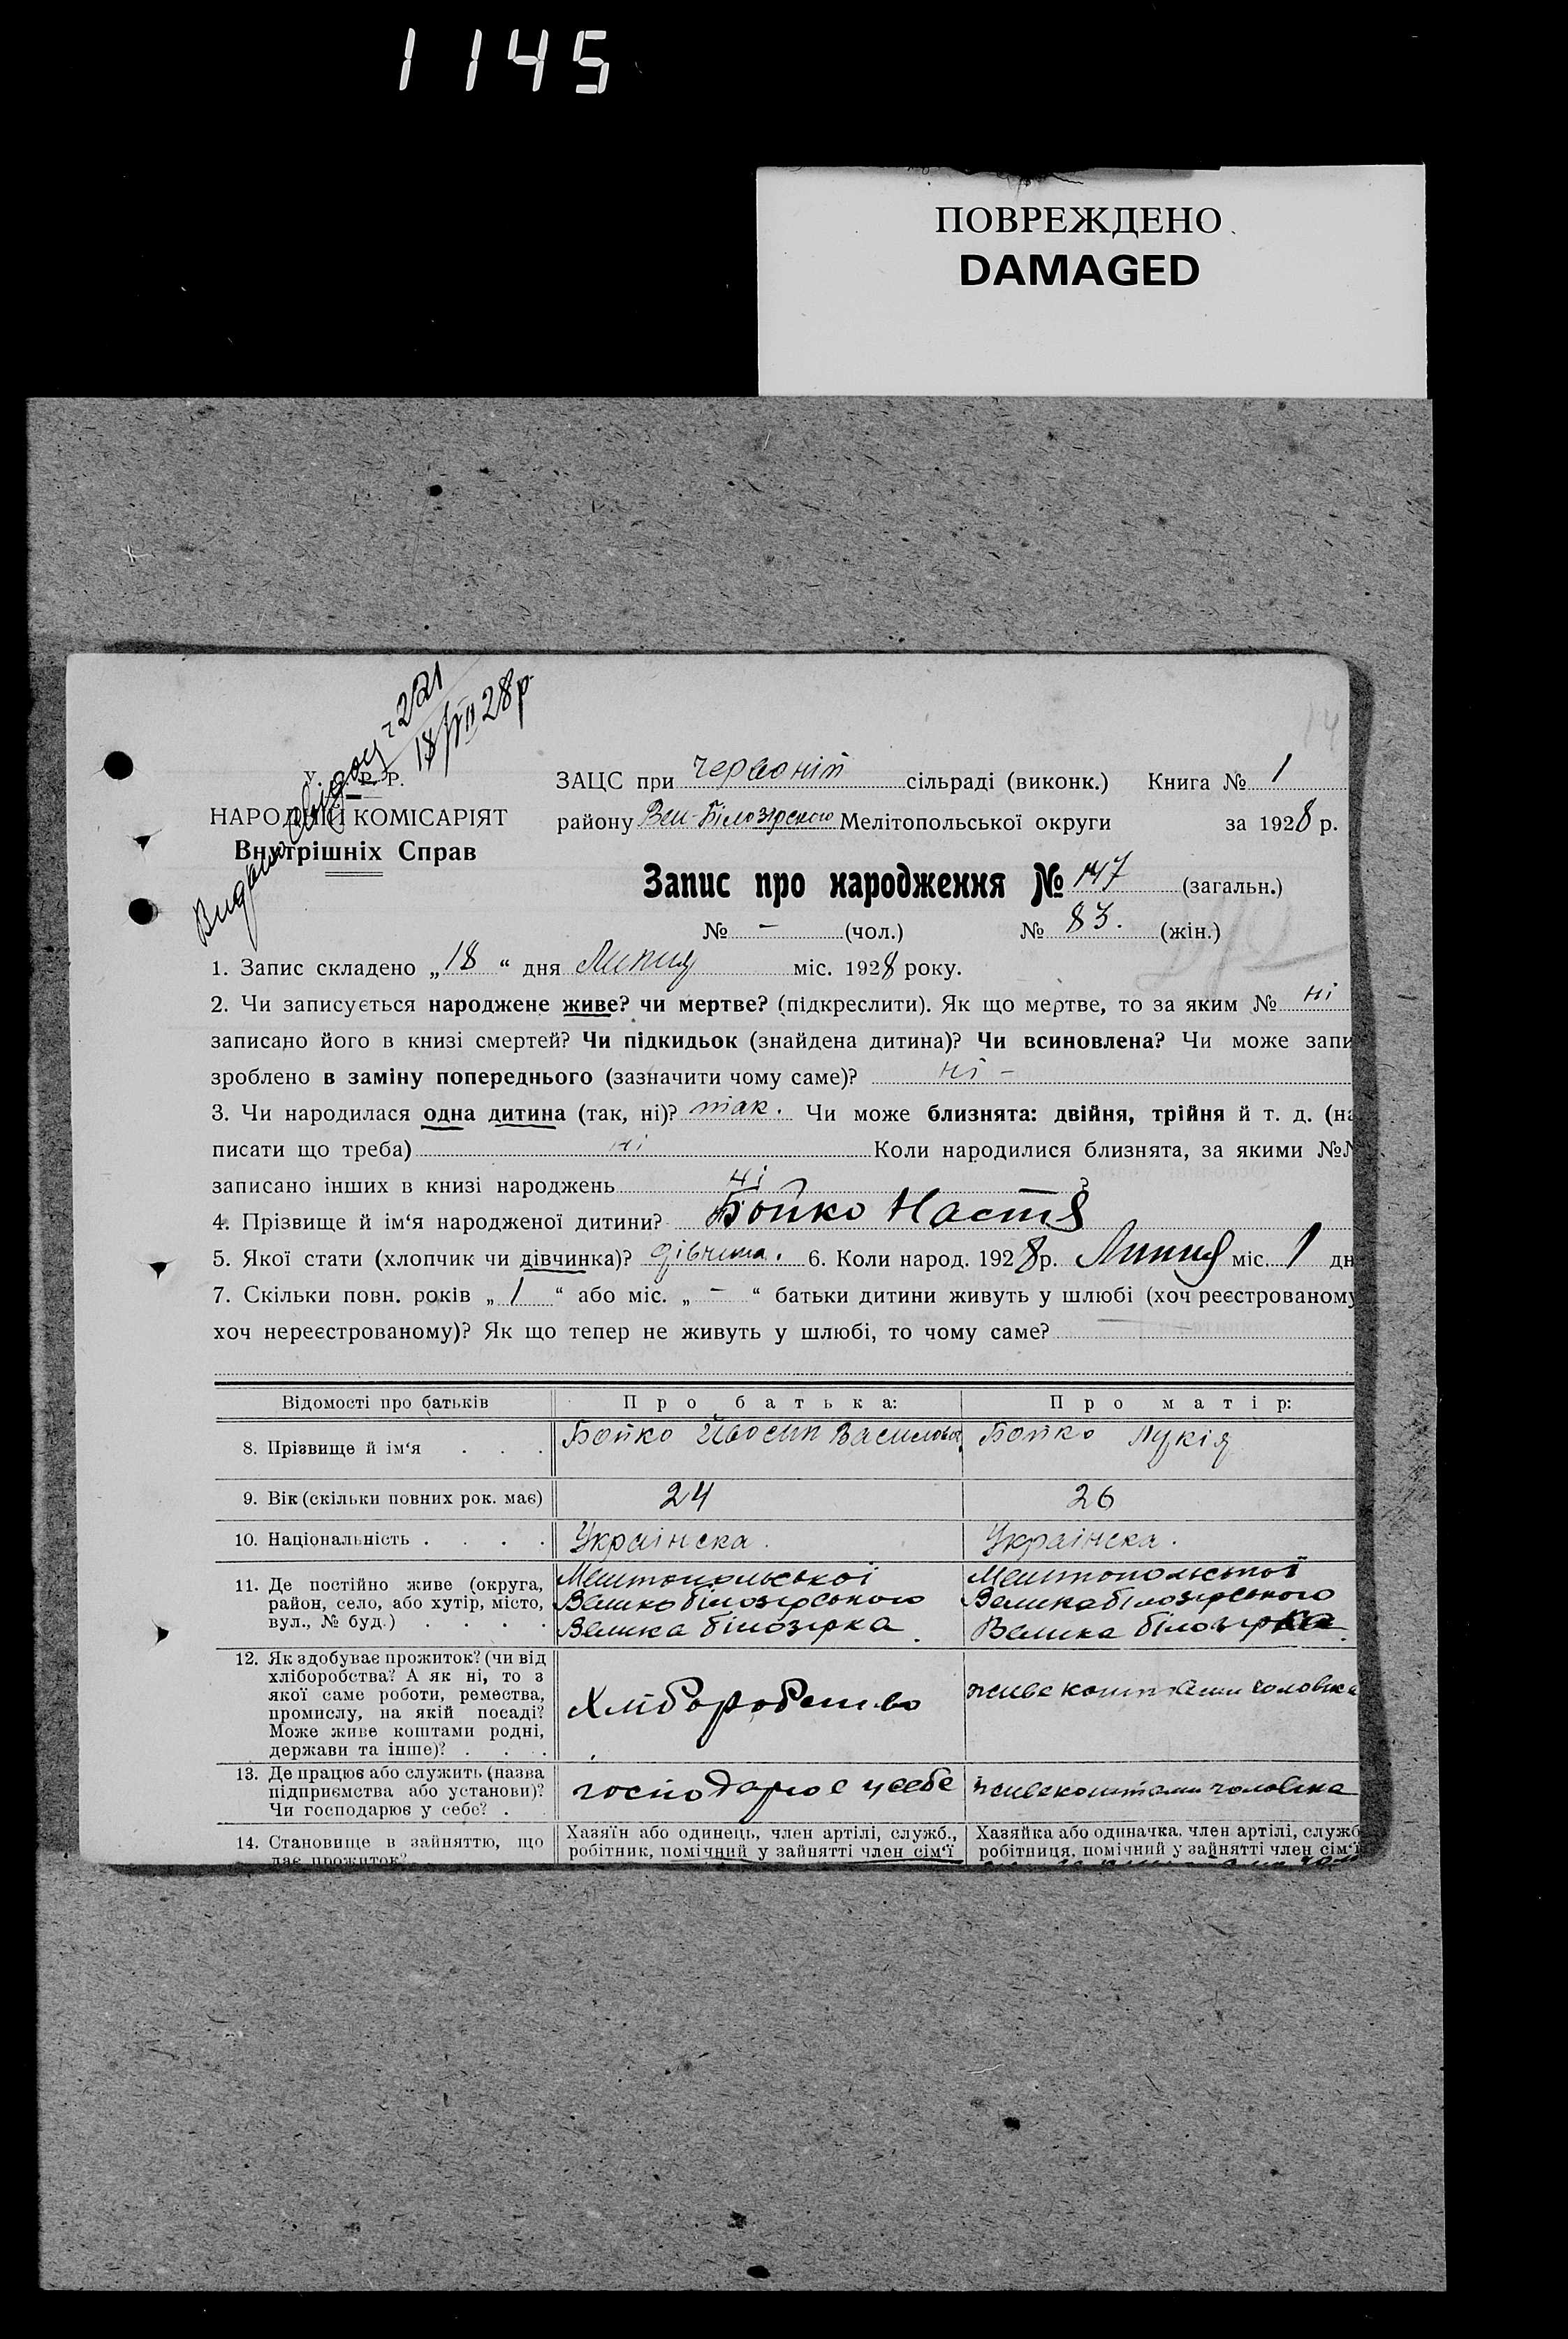 1145
ПОВРЕЖДЕНО
DAMAGED
221
18/VII 28р
У. Р. Р.
НАРОДНІЙ КОМІСАРІЯТ
Внутрішніх Справ
ЗАЦС при Червоній сільраді (виконк.) Книга № 1
району Вел-Білозірского Мелітопольської округи за 1928 р.
Запис про народження № 147 (загальн.)
№ - (чол.) № 83. (жін.)
1. Запис складено „18“ дня Липня міс. 1928 року.
2. Чи записується народжене живе? чи мертве? (підкреслити). Як що мертве, то за яким № ні
записано його в книзі смертей? Чи підкидьок (знайдена дитина)? Чи всиновлена? Чи може запи
зроблено в заміну попереднього (зазначити чому саме)? ні -
3. Чи народилася одна дитина (так, ні)? так. Чи може близнята: двійня, трійня й т. д. (на
писати що треба) ні Коли народилися близнята, за якими №№
записано інших в книзі народжень ні ?
4. Прізвище й ім‘я народженої дитини? Бойко Настя
5. Якої стати (хлопчик чи дівчинка)? дівчина. 6. Коли народ. 1928р. Липня міс. 1 дн
7. Скільки повн. років „1“ або міс. „-“ батьки дитини живуть у шлюбі (хоч реєстрованому
хоч нереєстрованому)? Як що тепер не живуть у шлюбі, то чому саме? —
Відомості про батьків Про батька: Про матір:
8. Прізвище й ім‘я . . . Бойко Йвосип Василов Бойко Лукія
9. Вік (скільки повних рок. має) 24 26
10. Національність . . . . Українска. Українска.
11. Де постійно живе (округа, район, село, або хутір, місто, вул., № буд.) . . . .
Мелитопольської
Великобілозірського
Велика білозірка.
Мелитопольської
Великабілозірського
Велика білозірка.
12. Як здобуває прожиток? (чи від
хліборобства? А як ні, то з
якої саме роботи, ремества,
промислу, на якій посаді?
Може живе коштами родні,
держави та інше)? . . .
Хліборобство
живе коштами чоловіка
13. Де працює або служить (назва
підприємства або установи)?
Чи господарює у себе? . .
господарює у себе
живе коштами чоловіка
14. Становище в зайняттю, що
дає прожиток?
Хазяїн або одинець, член артілі, служб.,
робітник, помічний у зайнятті член сім‘ї
Хазяйка або одиначка, член артілі, служб
робітниця, помічний у зайнятті член сім‘ї